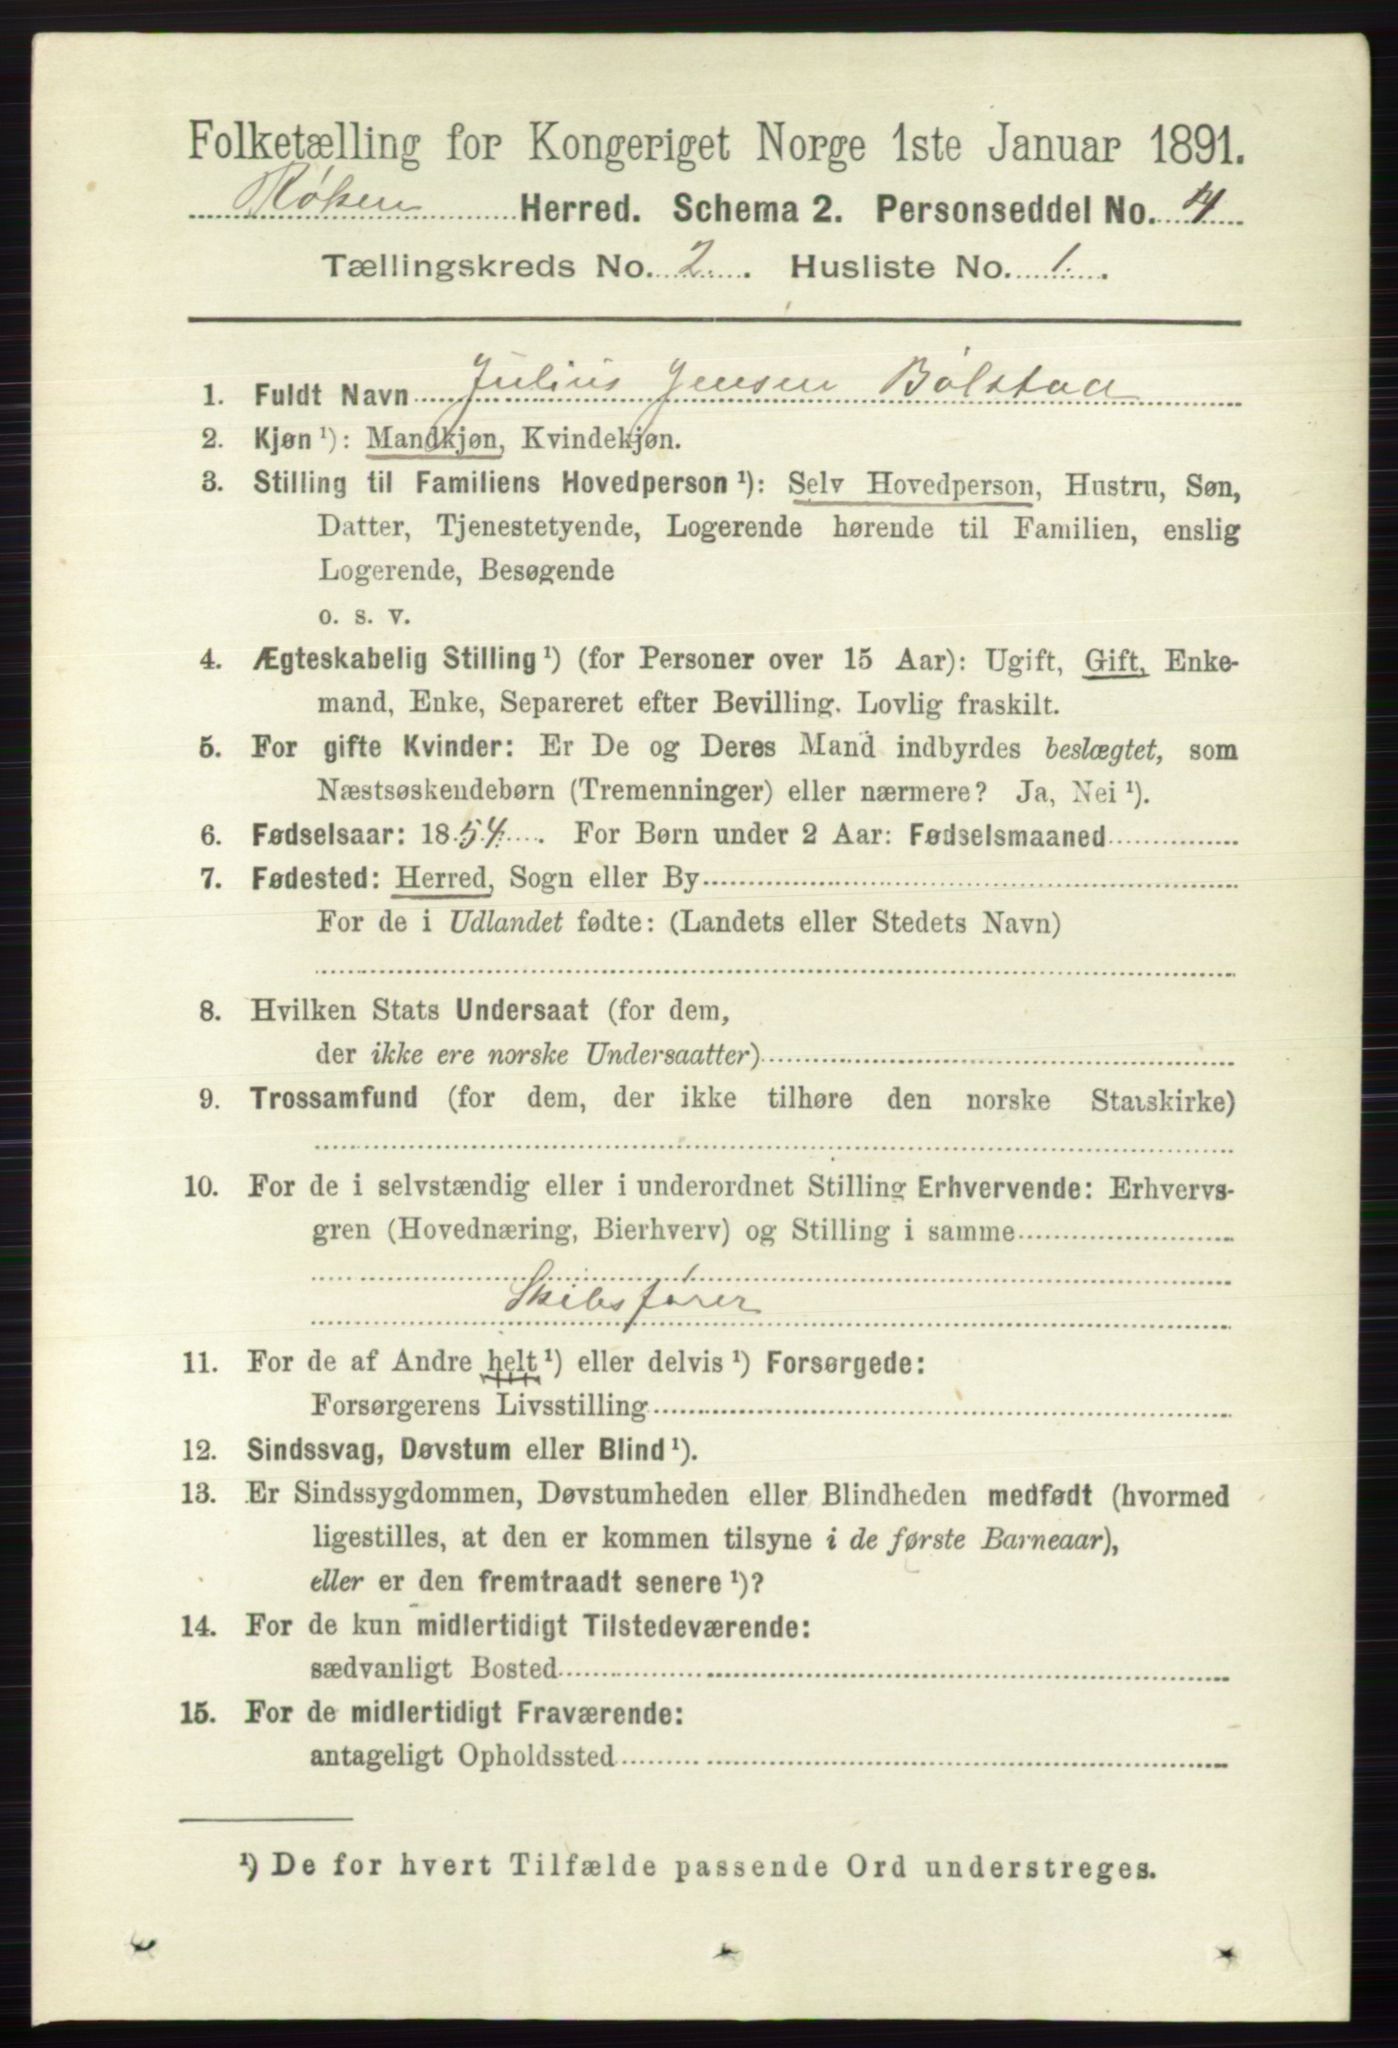 Folketælling for Kongeriget Norge 1ste Januar 1891.
Røken Herred. Schema 2. Personseddel No. 4
Tællingskreds No. 2. Husliste No. 1.
1. Fuldt Navn Julius Jensen Bølstad
2. Kjøn ¹): Mandkjøn, Kvindekjøn.
3. Stilling til Familiens Hovedperson ¹): Selv Hovedperson, Hustru, Søn,
Datter, Tjenestetyende, Logerende hørende til Familien, enslig
Logerende, Besøgende
o. s. v.
4. Ægteskabelig Stilling ¹) (for Personer over 15 Aar): Ugift, Gift, Enke-
mand, Enke, Separeret efter Bevilling. Lovlig fraskilt.
5. For gifte Kvinder: Er De og Deres Mand indbyrdes beslægtet, som
Næstsøskendebørn (Tremenninger) eller nærmere? Ja, Nei ¹).
6. Fødselsaar: 1854. For Børn under 2 Aar: Fødselsmaaned
7. Fødested: Herred, Sogn eller By
For de i Udlandet fødte: (Landets eller Stedets Navn)
8. Hvilken Stats Undersaat (for dem,
der ikke ere norske Undersaatter)
9. Trossamfund (for dem, der ikke tilhøre den norske Statskirke)
10. For de i selvstændig eller i underordnet Stilling Erhvervende: Erhvervs-
gren (Hovednæring, Bierhverv) og Stilling i samme
Skibsfører
11. For de af Andre helt ¹) eller delvis ¹) Forsørgede:
Forsørgerens Livsstilling
12. Sindssvag, Døvstum eller Blind ¹).
13. Er Sindssygdommen, Døvstumheden eller Blindheden medfødt (hvormed
ligestilles, at den er kommen tilsyne i de første Barneaar),
eller er den fremtraadt senere ¹)?
14. For de kun midlertidigt Tilstedeværende:
sædvanligt Bosted
15. For de midlertidigt Fraværende:
antageligt Opholdssted
¹) De for hvert Tilfælde passende Ord understreges.